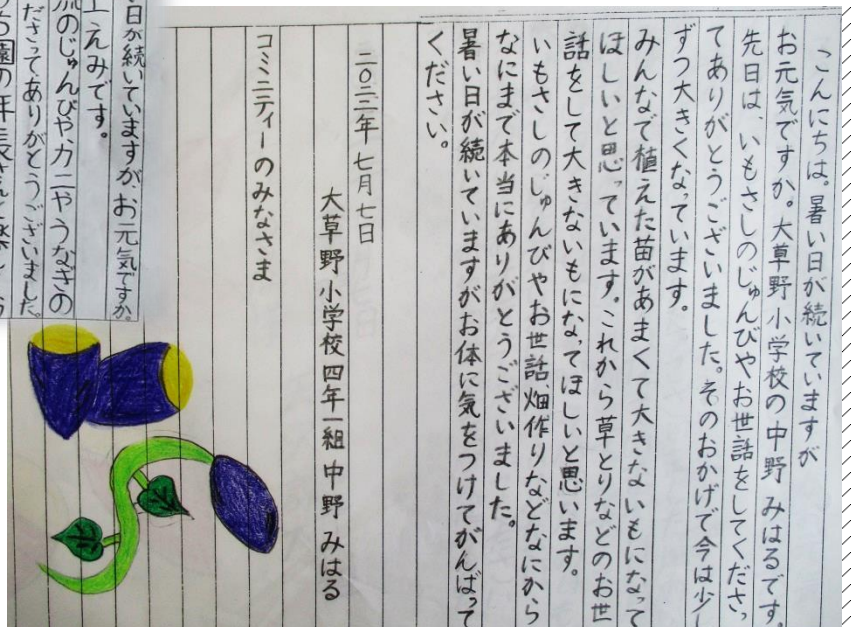 こんにちは。暑い日が続いていますが
お元気ですか。大草野小学校の中野みはるです。
先日は、いもさしのじゅんびやお世話をしてくださっ
てありがとうございました。そのおかげで今は少し
ずつ大きくなっています。
みんなで植えた苗があまくて大きないもになって
ほしいと思っています。これから草とりなどのお世
話をして大きないもになってほしいと思います。
いもさしのじゅんびやお世話、畑作りなどなにから
なにまで本当にありがとうございました。
暑い日が続いていますがお体に気をつけてがんばって
ください。
二〇二二年七月七日
大草野小学校四年一組 中野 みはる
コミニティーのみなさま
日が続いていますが、お元気ですか。
えみです。
のじゅんびやカニやうなぎの
ださってありがとうございました。
園の年長さんと